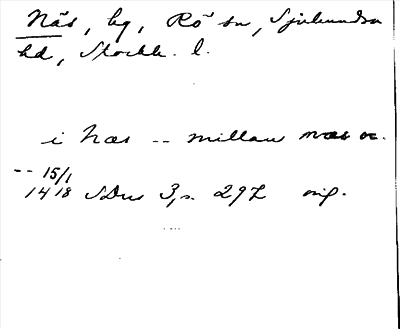 Näs, by, Rö sn, Sjuhundra
hd, Stockh. l.
i næs -- millan næs oc
-- 15/1
1418 SDns 3, s. 292 orig.